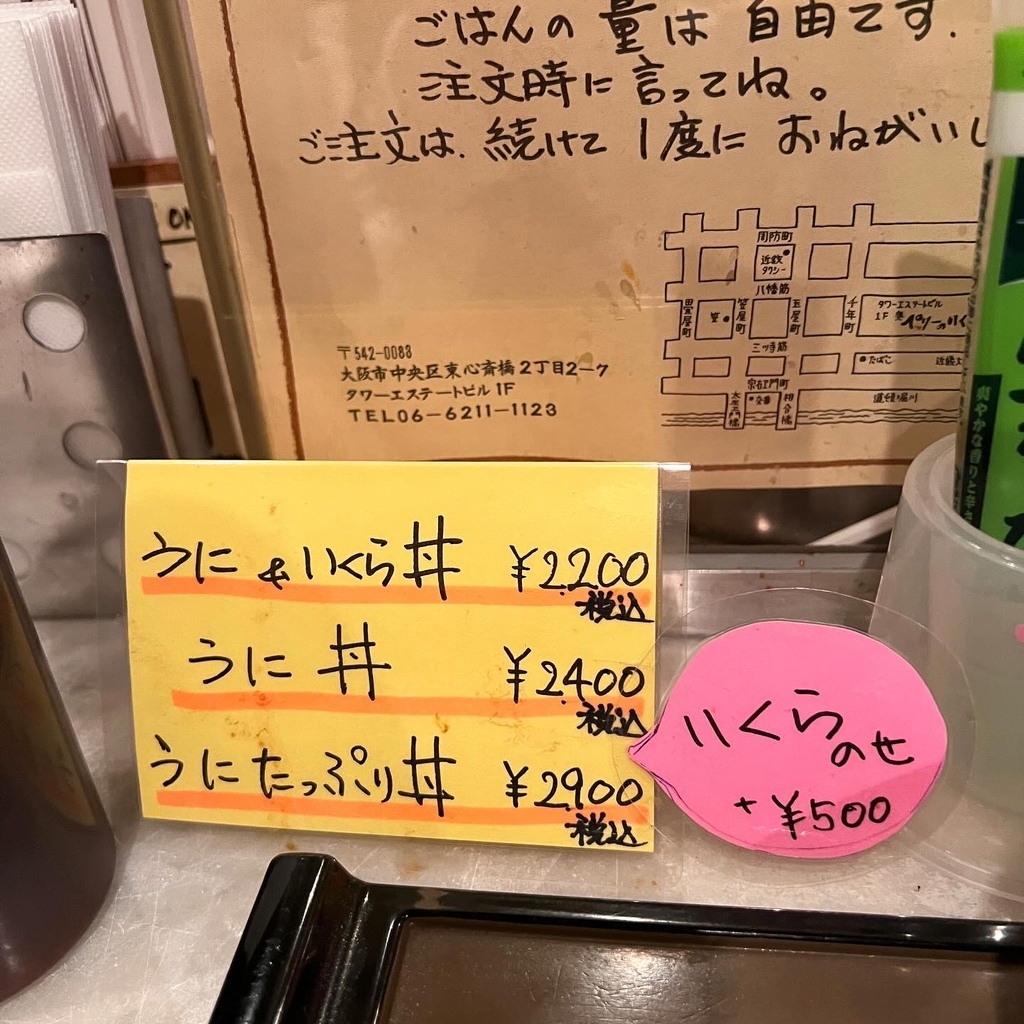 ごはんの量は自由です.
注文時に言ってね。
ご注文は、続けて1度におねがいし
〒542-0083
大阪市中央区東心斎橋2丁目2-7
タワーエステートビル1F
TEL06-6211-1123
周防町
近鉄タクシー
八幡筋
畳屋町
笠屋町
玉屋町
千年町
タワーエステートビル
1F
三ツ寺筋
たばこ
宗右エ門町
交番
相合橋
道頓堀川
うに&いくら丼 ¥2200
税込
うに丼 ¥2400
税込
うにたっぷり丼 ¥2900
税込
いくらのせ
+¥500
爽やかな香りと辛さ